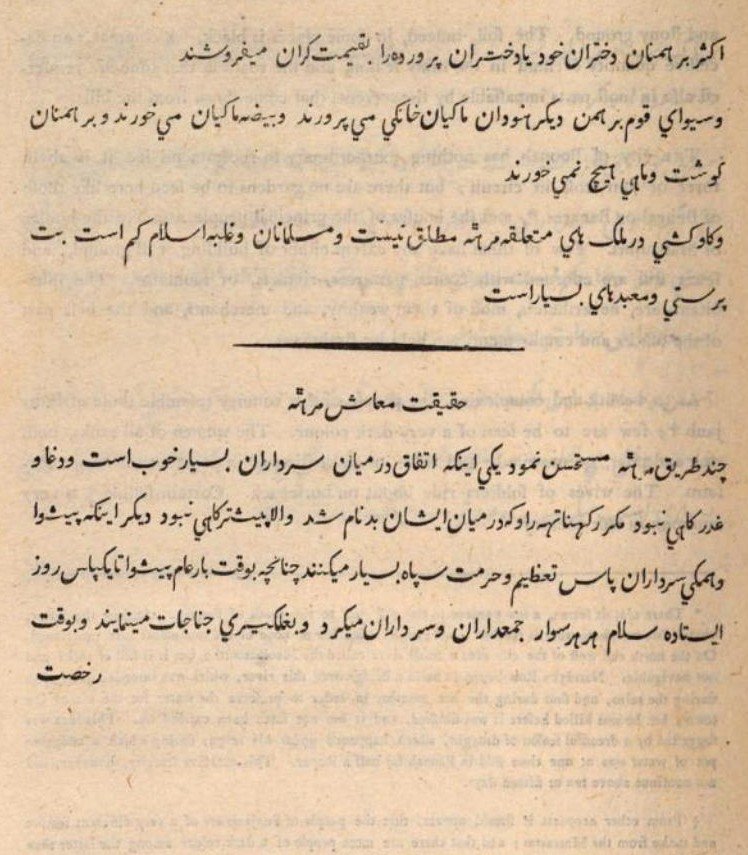 اكثر برهمنان دختران خود يا دختران پرورده را بقيمت كران ميفروشند
وسيواي قوم برهمن ديكر هنودان ماكيان خانكي مي پرورند وبيضه ماكيان مي خورند وبرهمنان
كوشت وماهي هيچ نمي خورند
وكاوكشي در ملك هاي متعلقه مرهته مطلق نيست ومسلمانان وغلبه اسلام كم است بت
پرستي ومعبدهاي بسيار است
حقيقت معاش مرهته
چند طريق مرهته مستحسن نمود يكي اينكه اتفاق درميان سرداران بسيار خوب است ودغا و
غدر كاهي نبود مكر ركهناتهه راو كه درميان ايشان بدنام شد والا پيشتر كاهي نبود ديكر اينكه پيشوا
وهمكي سرداران پاس تعظيم وحرمت سپاه بسيار ميكنند چنانچه بوقت بارعام پيشوا تا يكپاس روز
ايستاده سلام هر هر سوار جمعداران وسرداران ميكرد وبغلكيري جناجات مينمايند وبوقت
رخصت